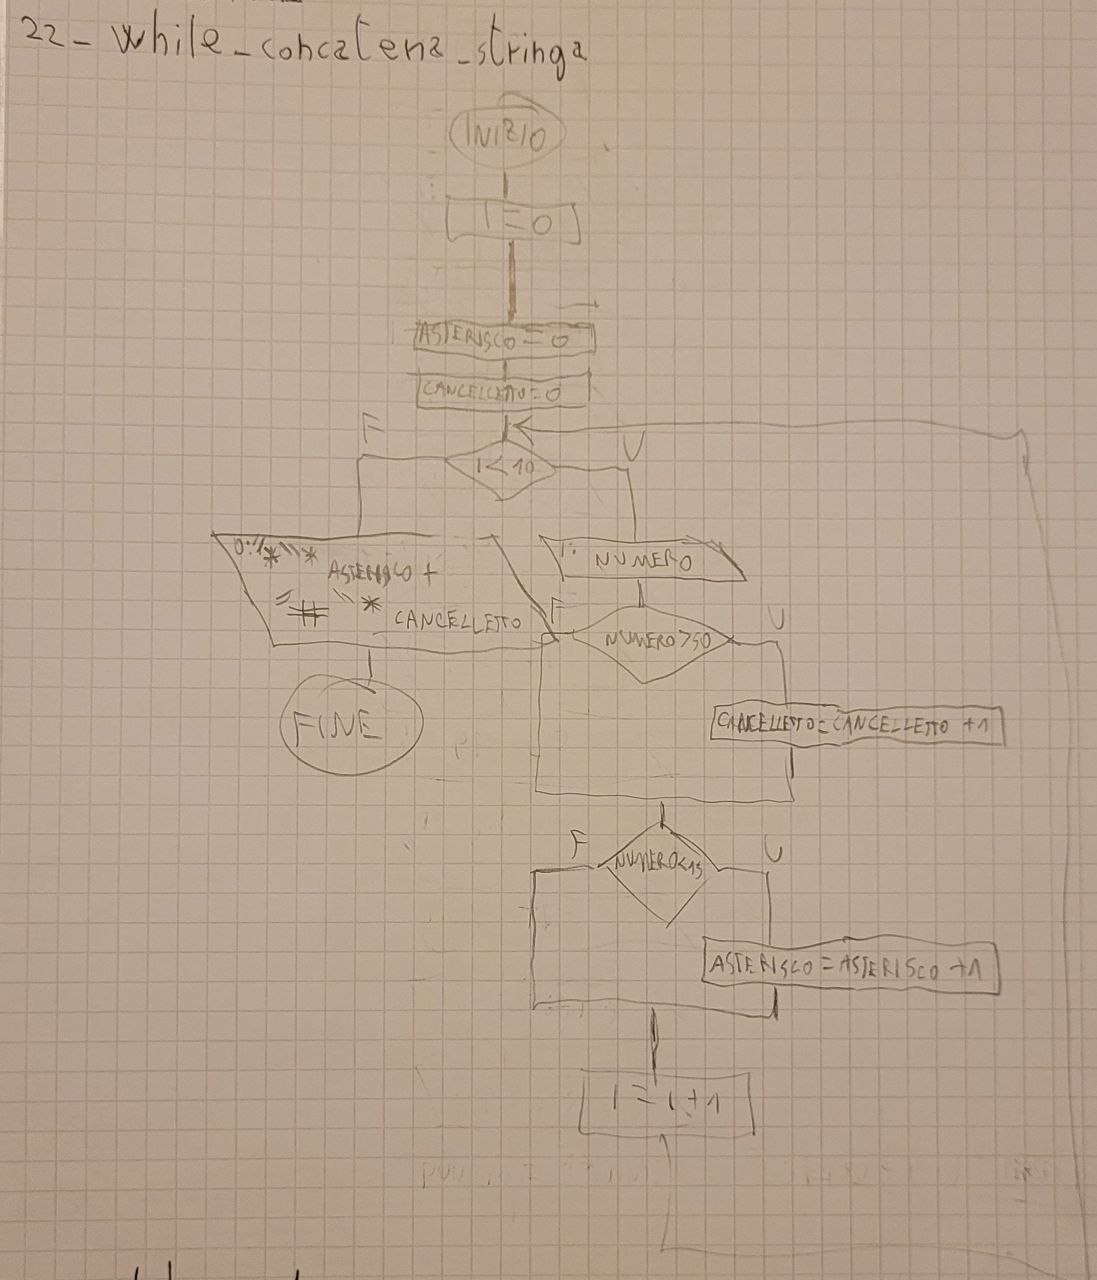 22- while_concatena_stringa
INIZIO
I = 0
ASTERISCO = 0
CANCELLETTO = 0
F
V
I < 10
O: "*" * ASTERISCO +
"#" * CANCELLETTO
FINE
I: NUMERO
F
V
NUMERO > 50
CANCELLETTO = CANCELLETTO + 1
F
V
NUMERO < 15
ASTERISCO = ASTERISCO + 1
I = I + 1